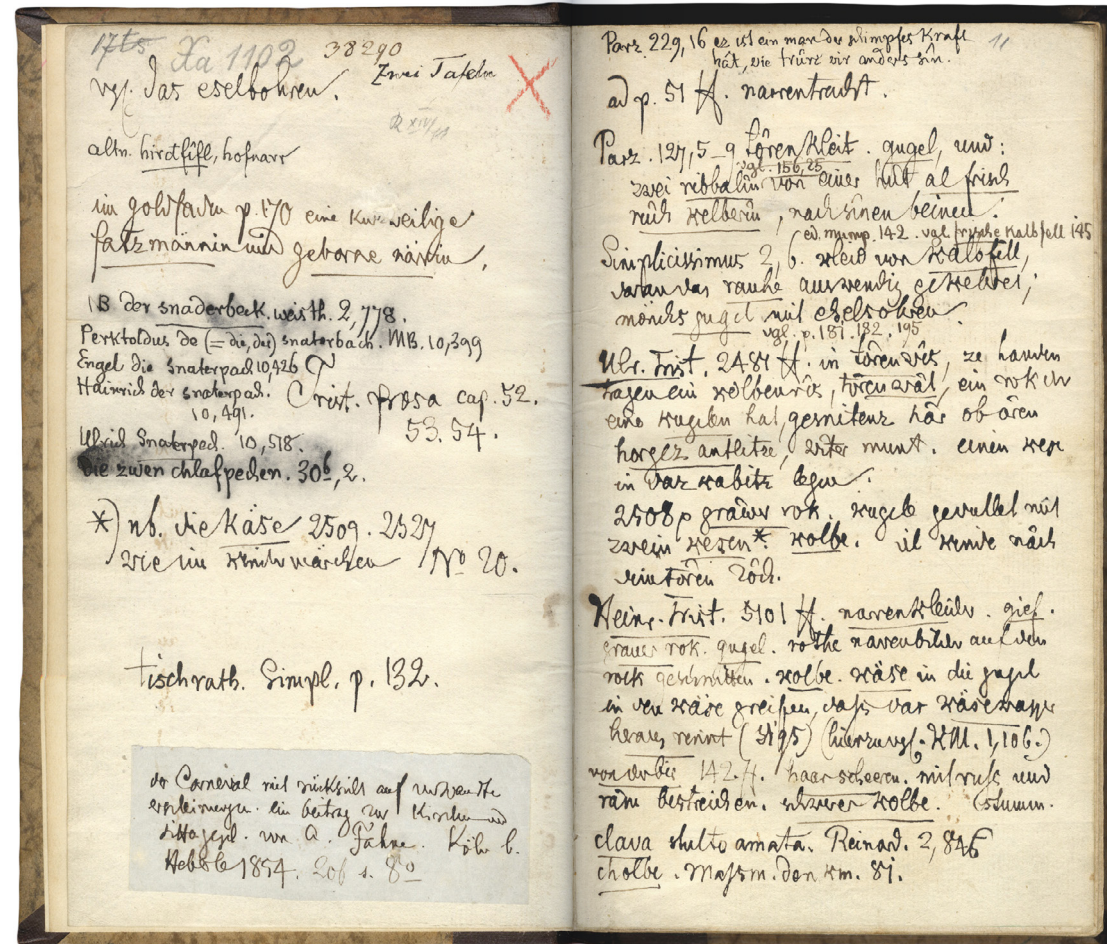 Xa 1102
38290
Zwei Tafeln
vgl. das eselbohren.
altn. hirdfîfl, hofnarr
im goldfaden p. 170 eine kurzweilige
fatzmännin und geborne närrin.
der snaderbeck. weisth. 2,778.
Perktoldus de (= die, dei) snaterbach. MB. 10,399
Engel die snaterpach 10,426
Hainrich der snaterpad.
10,491.
Christ. prosa cap. 52.
53. 54.
Ulrich Snaterped. 10,518.
die zwen chlafpecken. 30b,2.
*) nb. die Käse 2509. 2527
wie im kindermärchen No 20.
tischrath. Simpl. p. 132.
der Carneval mit rücksicht auf verwandte
erscheinungen. ein beitrag zur Kirchen und
sittengesch. von A. Fahne. Köln b.
Heberle 1854. 8o
11
Parz 229,16 ez ist ein man der schimpfes kraft
hât, wie trûrc wir anders sîn.
ad p. 51 ff. narrentracht.
Parz. 127,5-9 tôren kleit. gugel, und:
vgl. 156,25
zwei ribbalîn von einer hût al frisch
rûch kelberîn, nach sînen beinen.
vgl. frische kalbfell 145
Simplicissimus 2,6. kleid von Kalbfell,
daran das rauhe auswendig gekehret;
mönchs gugel mit eselsohren.
vgl. p. 181. 182. 195
Ulr. Trist. 2481 ff. in tôren wîs, ze handen
tragen ein kolben rîs, tôren wât, ein rok der
eine kugelen hat, gesniten hâr ob ôren
antlitze, witer munt. einen
in
2508 grâwer rok. kugele gevullet mit
zwein kesen*. kolbe. nâch
tôren
Heinr. Trist. 5101 ff. narrenkleider. gief.
grauer rok. gugel. rothe narrenbilder auf den
rock geschnitten. kolbe. käse in die gugel
in den käse greifen, dass das käsewasser
heraus rinnt (5195) (hierzu vgl. KM. 1,106.)
142. ff. haar scheeren. mit russ und
râm bestreichen. schwerer kolbe. stumm.
clava stulto amata. Reinard. 2,846
cholbe. Massm. denkm. 81.